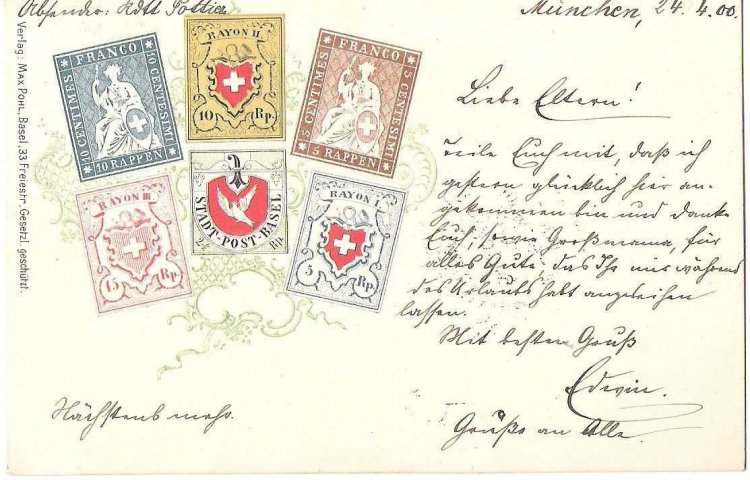 Absender: Kdtt Pottier
München, 24. 4. 00.
Verlag: MAX POHL, Basel, 33 Freiestr. Gesetzl. geschützt.
FRANCO
10 CENTIMES
10 CENTESIMI
10 RAPPEN
RAYON II.
10 Rp.
FRANCO
5 CENTIMES
5 CENTESIMI
5 RAPPEN
RAYON III.
15 Rp.
STADT-POST-BASEL
2½ Rp.
RAYON I.
5 Rp.
Liebe Eltern!
Teile Euch mit, daß ich
gestern glücklich hier an-
gekommen bin und danke
Euch, sowie Großmama, für
alles Gute, das Ihr mir während
des Urlaubs habt angedeihen
lassen.
Mit bestem Gruß
Edwin.
Grüße an Alle.
Nächstens mehr.